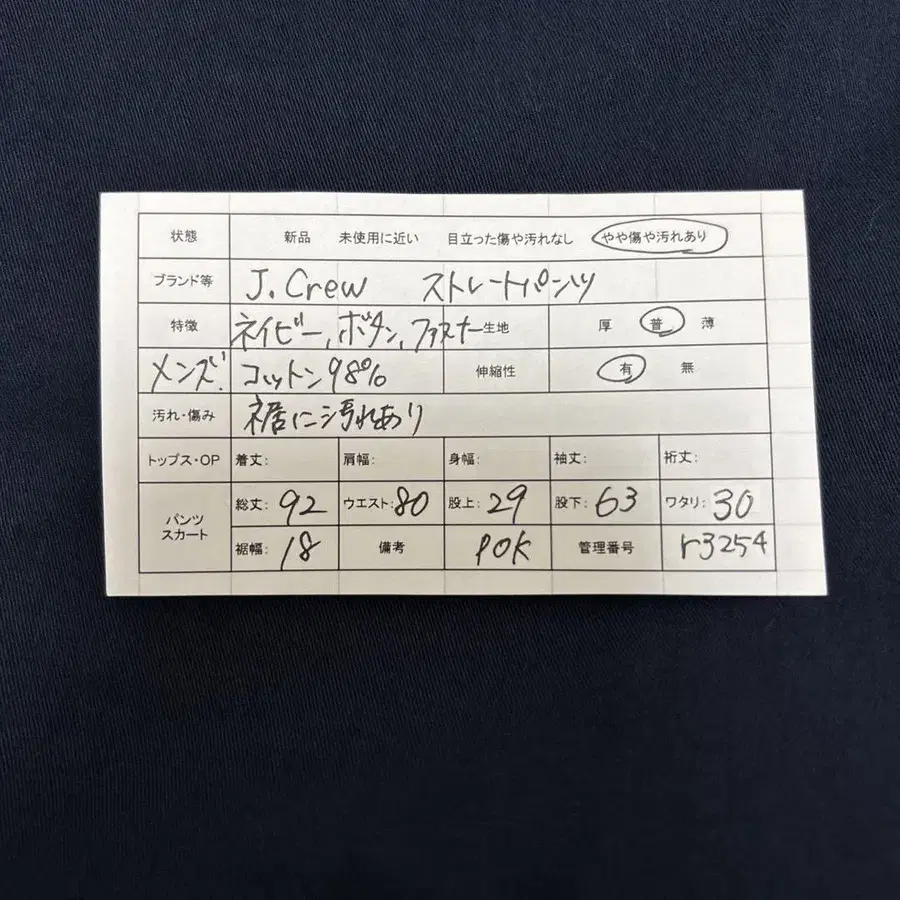 状態 新品 未使用に近い 目立った傷や汚れなし やや傷や汚れあり
ブランド等 J.Crew ストレートパンツ
特徴 ネイビー,ボタン,ファスナー 生地 厚 普 薄
メンズ. コットン98% 伸縮性 有 無
汚れ・傷み 裾に汚れあり
トップス・OP 着丈: 肩幅: 身幅: 袖丈: 裄丈:
パンツ スカート 総丈: 92 ウエスト: 80 股上: 29 股下: 63 ワタリ: 30
裾幅: 18 備考 POK 管理番号 r3254